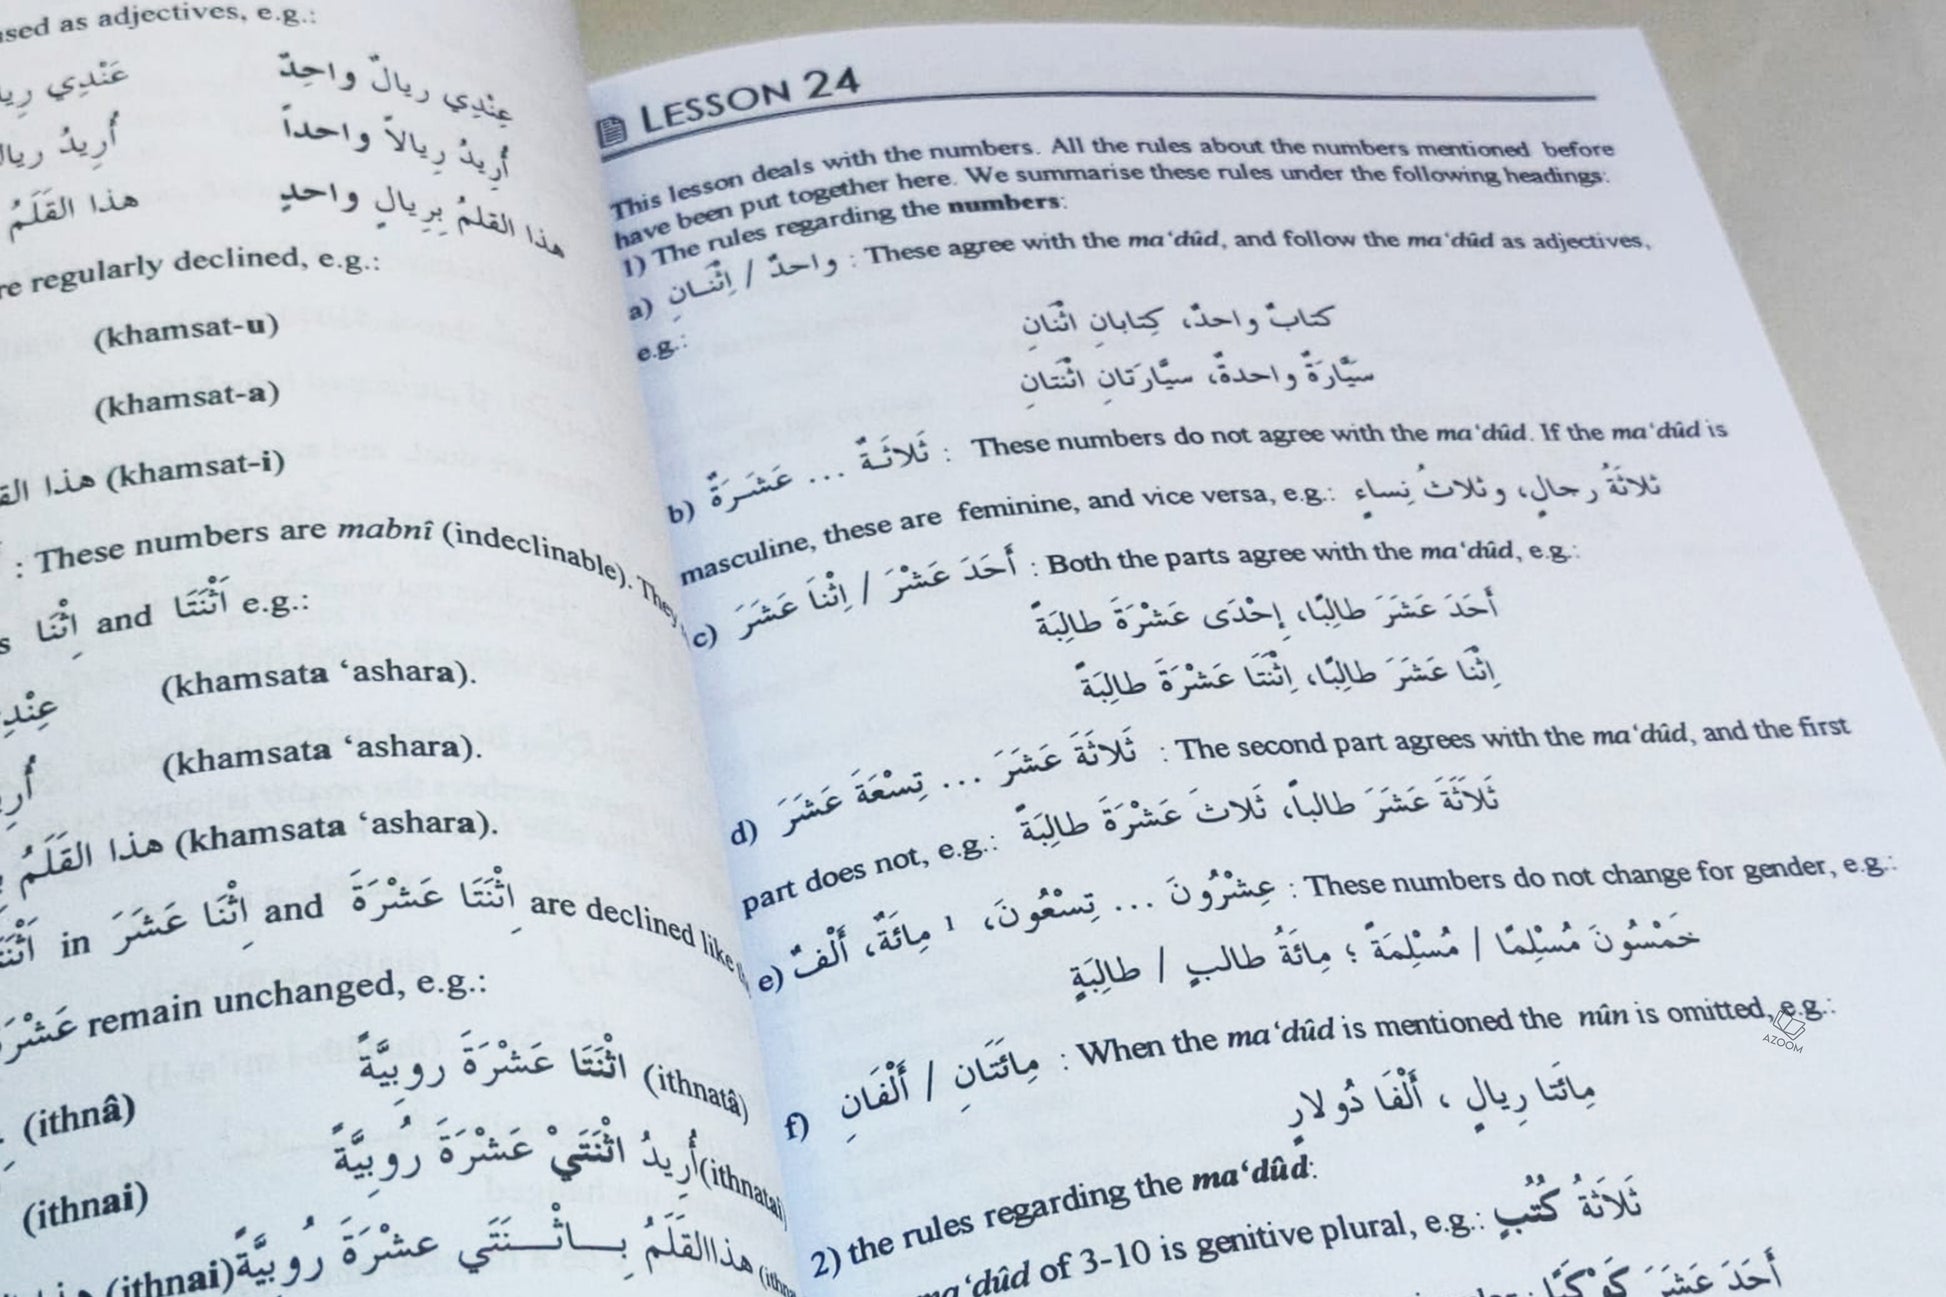 used as adjectives, e.g.:
عِنْدِي ريالٌ واحِدٌ
عَنْدِي
أُرِيدُ رِيالاً واحداً
أُرِيدُ
هذا القلمُ بِرِيالٍ واحدٍ
هذا القَلَمُ
regularly declined, e.g.:
(khamsat-u)
(khamsat-a)
(khamsat-i) هذا
: These numbers are mabnî (indeclinable). They
إِثْنَا and اَثْنَتَا e.g.:
(khamsata ‘ashara).
(khamsata ‘ashara).
هذا القَلَمُ (khamsata ‘ashara).
in إِثْنَا عَشَرَ and إِثْنَتَا عَشْرَةَ are declined like
عَشْرَةَ remain unchanged, e.g.:
(ithnâ) اثْنَتَا عَشْرَةَ روبِيَّةً (ithnatâ)
(ithnai) أُرِيدُ اثْنَتَيْ عَشْرَةَ رُوبِيَّةً (ithnatai)
(ithnai) هذاالقَلَمُ بِـاثْـنَتَي عشْرَةَ رُوبِيَّةً
LESSON 24
This lesson deals with the numbers. All the rules about the numbers mentioned before
have been put together here. We summarise these rules under the following headings:
1) The rules regarding the numbers:
a) واحدٌ / اِثْنَـانِ : These agree with the ma‘dûd, and follow the ma‘dûd as adjectives,
e.g.: كتابٌ واحدٌ، كِتابانِ اثْنانِ
سيَّارَةٌ واحدةٌ، سيَّارَتانِ اثْنتانِ
b) ثَلاثَـةٌ ... عَشَـرَةٌ : These numbers do not agree with the ma‘dûd. If the ma‘dûd is
masculine, these are feminine, and vice versa, e.g.: ثلاثَةُ رجالٍ، وثلاثُ نِساءٍ
c) أَحَدَ عَشْرَ / اِثْنَا عَشَرَ : Both the parts agree with the ma‘dûd, e.g.:
أَحَدَ عَشَرَ طالِبًا، إِحْدَى عَشْرَةَ طالِبَةً
اِثْنَا عَشَرَ طالِبًا، اِثْنَتَا عَشْرَةَ طالِبَةً
d) ثَلاثَةَ عَشَرَ ... تِسْعَةَ عَشَرَ : The second part agrees with the ma‘dûd, and the first
part does not, e.g.: ثَلاثَةَ عَشَرَ طالباً، ثَلاثَ عَشْرَةَ طالِبَةً
e) عِشْرُونَ ... تِسْعُونَ، ١ مِائَةٌ، أَلْفٌ : These numbers do not change for gender, e.g.:
خَمْسُونَ مُسْلِمًا / مُسْلِمَةً ؛ مِائَةُ طالبٍ / طالِبَةٍ
f) مِائَتَانِ / أَلْفَانِ : When the ma‘dûd is mentioned the nûn is omitted, e.g.:
مِائَتا رِيالٍ ، أَلْفَا دُولارٍ
2) the rules regarding the ma‘dûd:
ma‘dûd of 3-10 is genitive plural, e.g.: ثَلاثَةُ كُتُبٍ
أَحَدَ عَشَرَ كَوْكَبًا
AZOOM